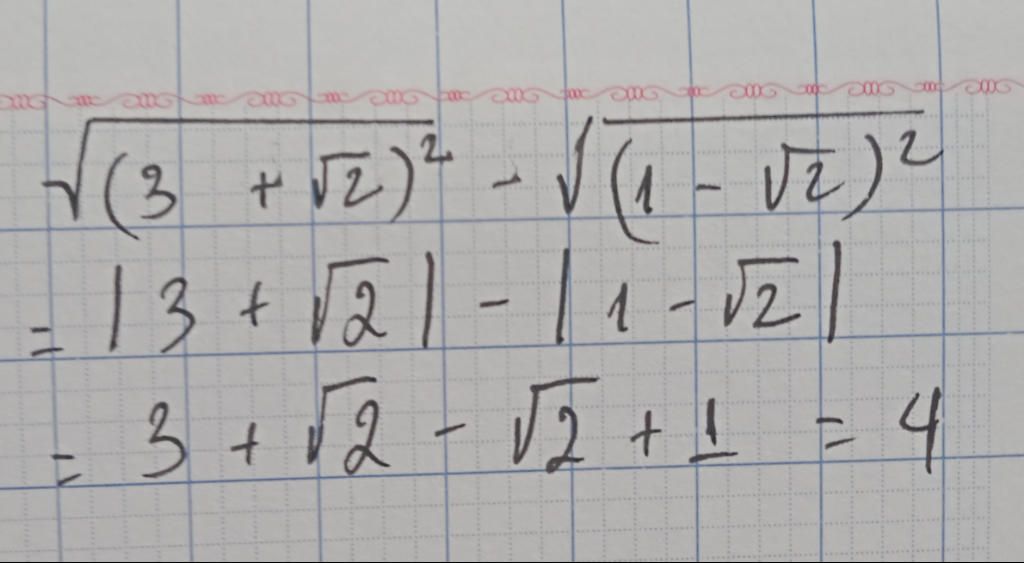 √(3 + √2)² - √(1 - √2)²
= |3 + √2| - |1 - √2|
= 3 + √2 - √2 + 1 = 4